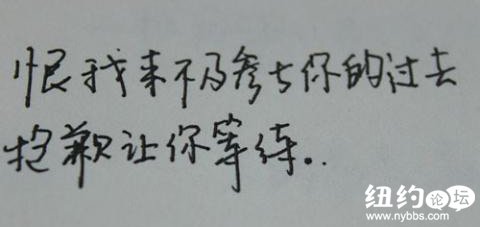 恨我来不及参与你的过去
抱歉让你等待..
纽约论坛
www.nybbs.com